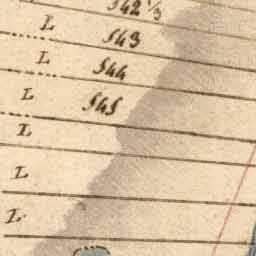 542 1/3
L 543
L 544
L 545
L
L
L